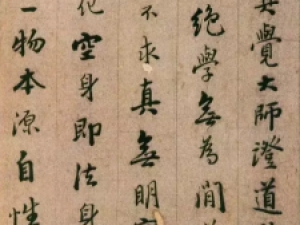 覺大師證道
絕學無為閒
不求真無明
化空身即法身
一物本源自性